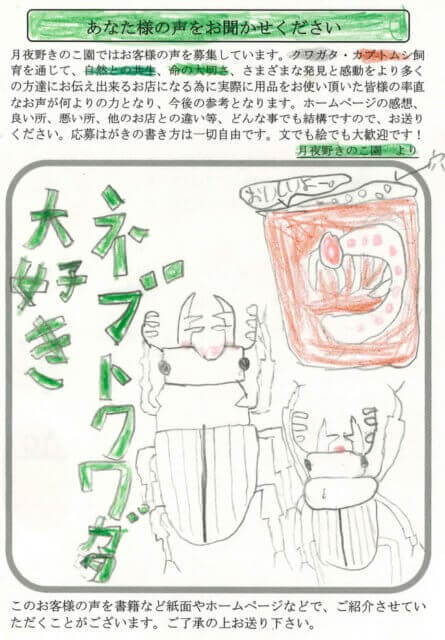 あなた様の声をお聞かせください
月夜野きのこ園ではお客様の声を募集しています。クワガタ・カブトムシ飼
育を通じて、自然との共生、命の大切さ、さまざまな発見と感動をより多く
の方達にお伝え出来るお店になる為に実際に用品をお使い頂いた皆様の率直
なお声が何よりの力となり、今後の参考となります。ホームページの感想、
良い所、悪い所、他のお店との違い等、どんな事でも結構ですので、お送り
ください。応募はがきの書き方は一切自由です。文でも絵でも大歓迎です！
月夜野きのこ園　より
穴
おいしいよー
ネブトクワガタ
大好き
このお客様の声を書籍など紙面やホームページなどで、ご紹介させていた
だくことがございます。ご了承の上お送り下さい。